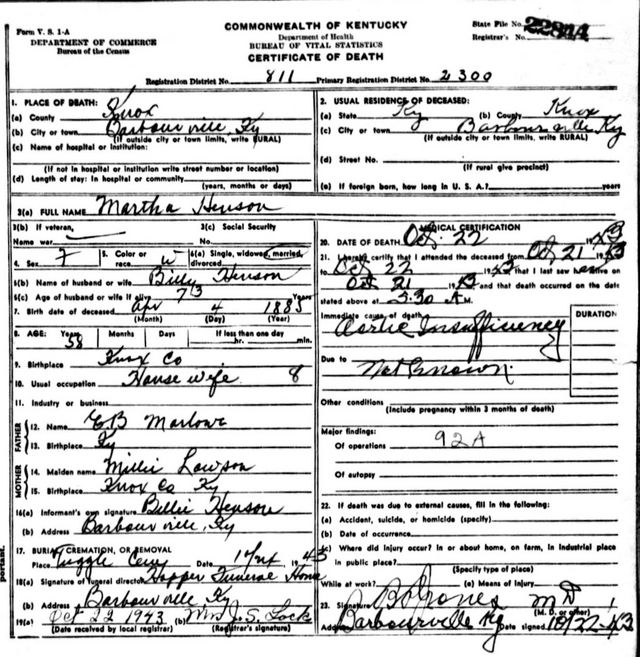 Form V. S. 1-A
DEPARTMENT OF COMMERCE
Bureau of the Census
COMMONWEALTH OF KENTUCKY
Department of Health
BUREAU OF VITAL STATISTICS
CERTIFICATE OF DEATH
State File No.
Registrar's No.
Registration District No. 811 Primary Registration District No. 2300
1. PLACE OF DEATH:
(a) County Knox
(b) City or town Barbourville, Ky
(If outside city or town limits, write RURAL)
(c) Name of hospital or institution:
(If not in hospital or institution write street number or location)
(d) Length of stay: In hospital or community
(years, months or days)
2. USUAL RESIDENCE OF DECEASED:
(a) State Ky (b) County Knox
(c) City or town Barbourville Ky
(If outside city or town limits, write RURAL)
(d) Street No.
(If rural give precinct)
(e) If foreign born, how long in U. S. A.? years
3(a) FULL NAME Martha Henson
3(b) If veteran, 3(c) Social Security
Name war No.
4. Sex F 5. Color or race W 6(a) Single, widowed, married, divorced
6(b) Name of husband or wife Billy Henson
6(c) Age of husband or wife if alive 73 Years
7. Birth date of deceased Apr 4 1885
(Month) (Day) (Year)
8. AGE: Years Months Days If less than one day
58 hr. min.
9. Birthplace Knox Co
10. Usual occupation House wife 8
11. Industry or business
FATHER
12. Name EB Marlowe
13. Birthplace Ky
MOTHER
14. Maiden name Millie Lawson
15. Birthplace Knox Co Ky
16(a) Informant's own signature Billie Henson
(b) Address Barbourville, Ky
17. BURIAL, CREMATION, OR REMOVAL
Place Tuggle Cem Date 1943
18(a) Signature of funeral director Hopper Funeral Home
(b) Address Barbourville Ky
19(a) Oct 22 1943 (b) Mrs J. S. Lock
(Date received by local registrar) (Registrar's signature)
MEDICAL CERTIFICATION
20. DATE OF DEATH Oct. 22 1943
21. I hereby certify that I attended the deceased from Oct 21 1943
to Oct 22 1943 that I last saw alive on
Oct 21 1943 and that death occurred on the date
stated above at 5:30 A M.
Immediate cause of death DURATION
Aortic Insufficiency
Due to Not Known
Other conditions
(Include pregnancy within 3 months of death)
Major findings:
Of operations 92A
Of autopsy
22. If death was due to external causes, fill in the following:
(a) Accident, suicide, or homicide (specify)
(b) Date of occurrence
(c) Where did injury occur? in or about home, on farm, in industrial place
in public place?
(Specify type of place)
While at work? (e) Means of injury
23. Signature Jones MD
(M. D. or other)
Address Barbourville Ky Date signed 10/22-43
portant.